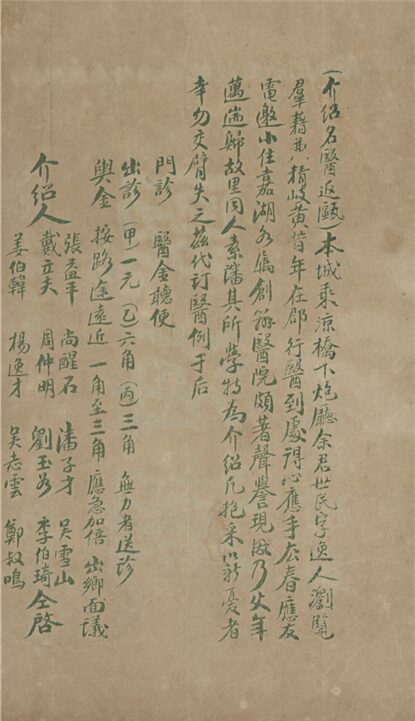 (介绍名醫返甌)本城乘凉橋下炮廳余君世民字逸人瀏覧
羣籍尤精岐黄昔年在郡行醫到處得心應手去春應友
電邀小住嘉湖名儁創辦醫院頗著聲譽現因乃父年
邁遄歸故里同人素諗其所學特為介绍凡抱采薪憂者
幸勿交臂失之茲代訂醫例于后
門診 醫金聽便
出診 (甲)一元 (乙)六角 (丙)三角 無力者送診
輿金 按路途遠近 一角至三角 應急加倍 出鄉面議
介绍人 張益平 尚醒石 潘子才 吴雪山
戴立夫 周仲明 劉玉如 李伯琦 仝啓
姜伯韓 楊逸才 吴志雲 鄭叔鳴